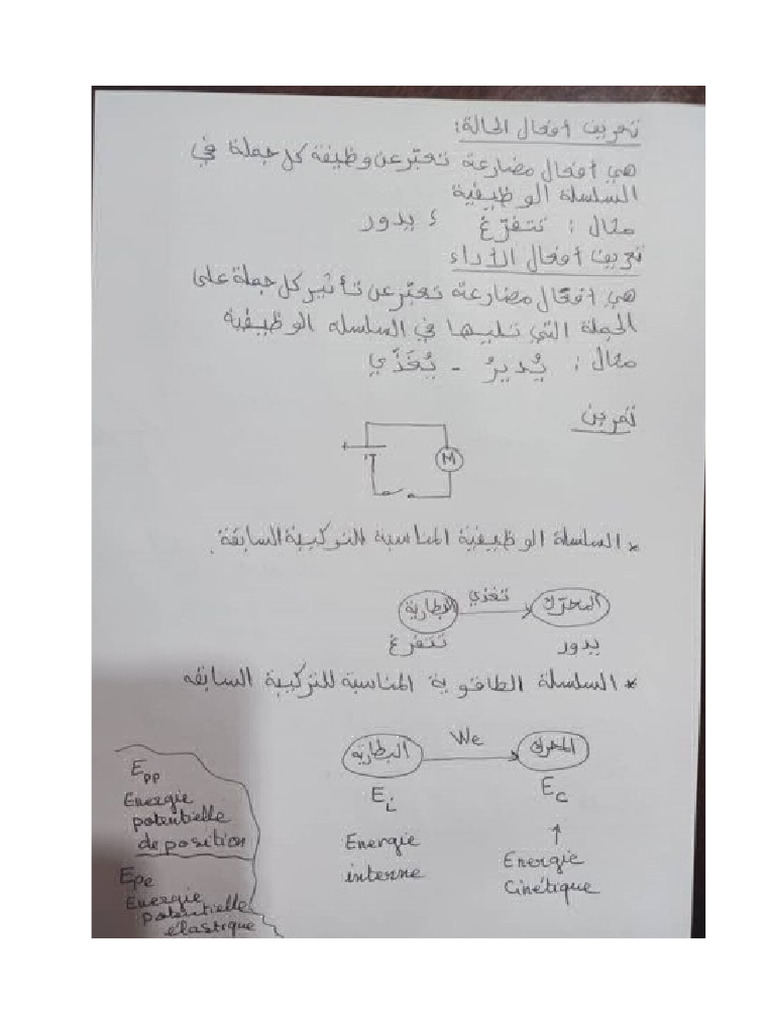 تعريف أفعال الحالة:
هي أفعال مضارعة تعبّر عن وظيفة كل جملة في
السلسلة الوظيفية
مثال : تتفرّغ ، يدور
تعريف أفعال الأداء
هي أفعال مضارعة تعبّر عن تأثير كل جملة على
الجملة التي تليها في السلسلة الوظيفية
مثال : يُديرُ - يُغَذّي
تمرين
M
* السلسلة الوظيفية المناسبة للتركيبة السابقة.
البطارية تغذي المحرّك
تتفرغ يدور
* السلسلة الطاقوية المناسبة للتركيبة السابقة
البطارية We المحرك
Ei Ec
Energie
interne
Energie
Cinétique
Epp
Energie
potentielle
de position
Epe
Energie
potentielle
élastique